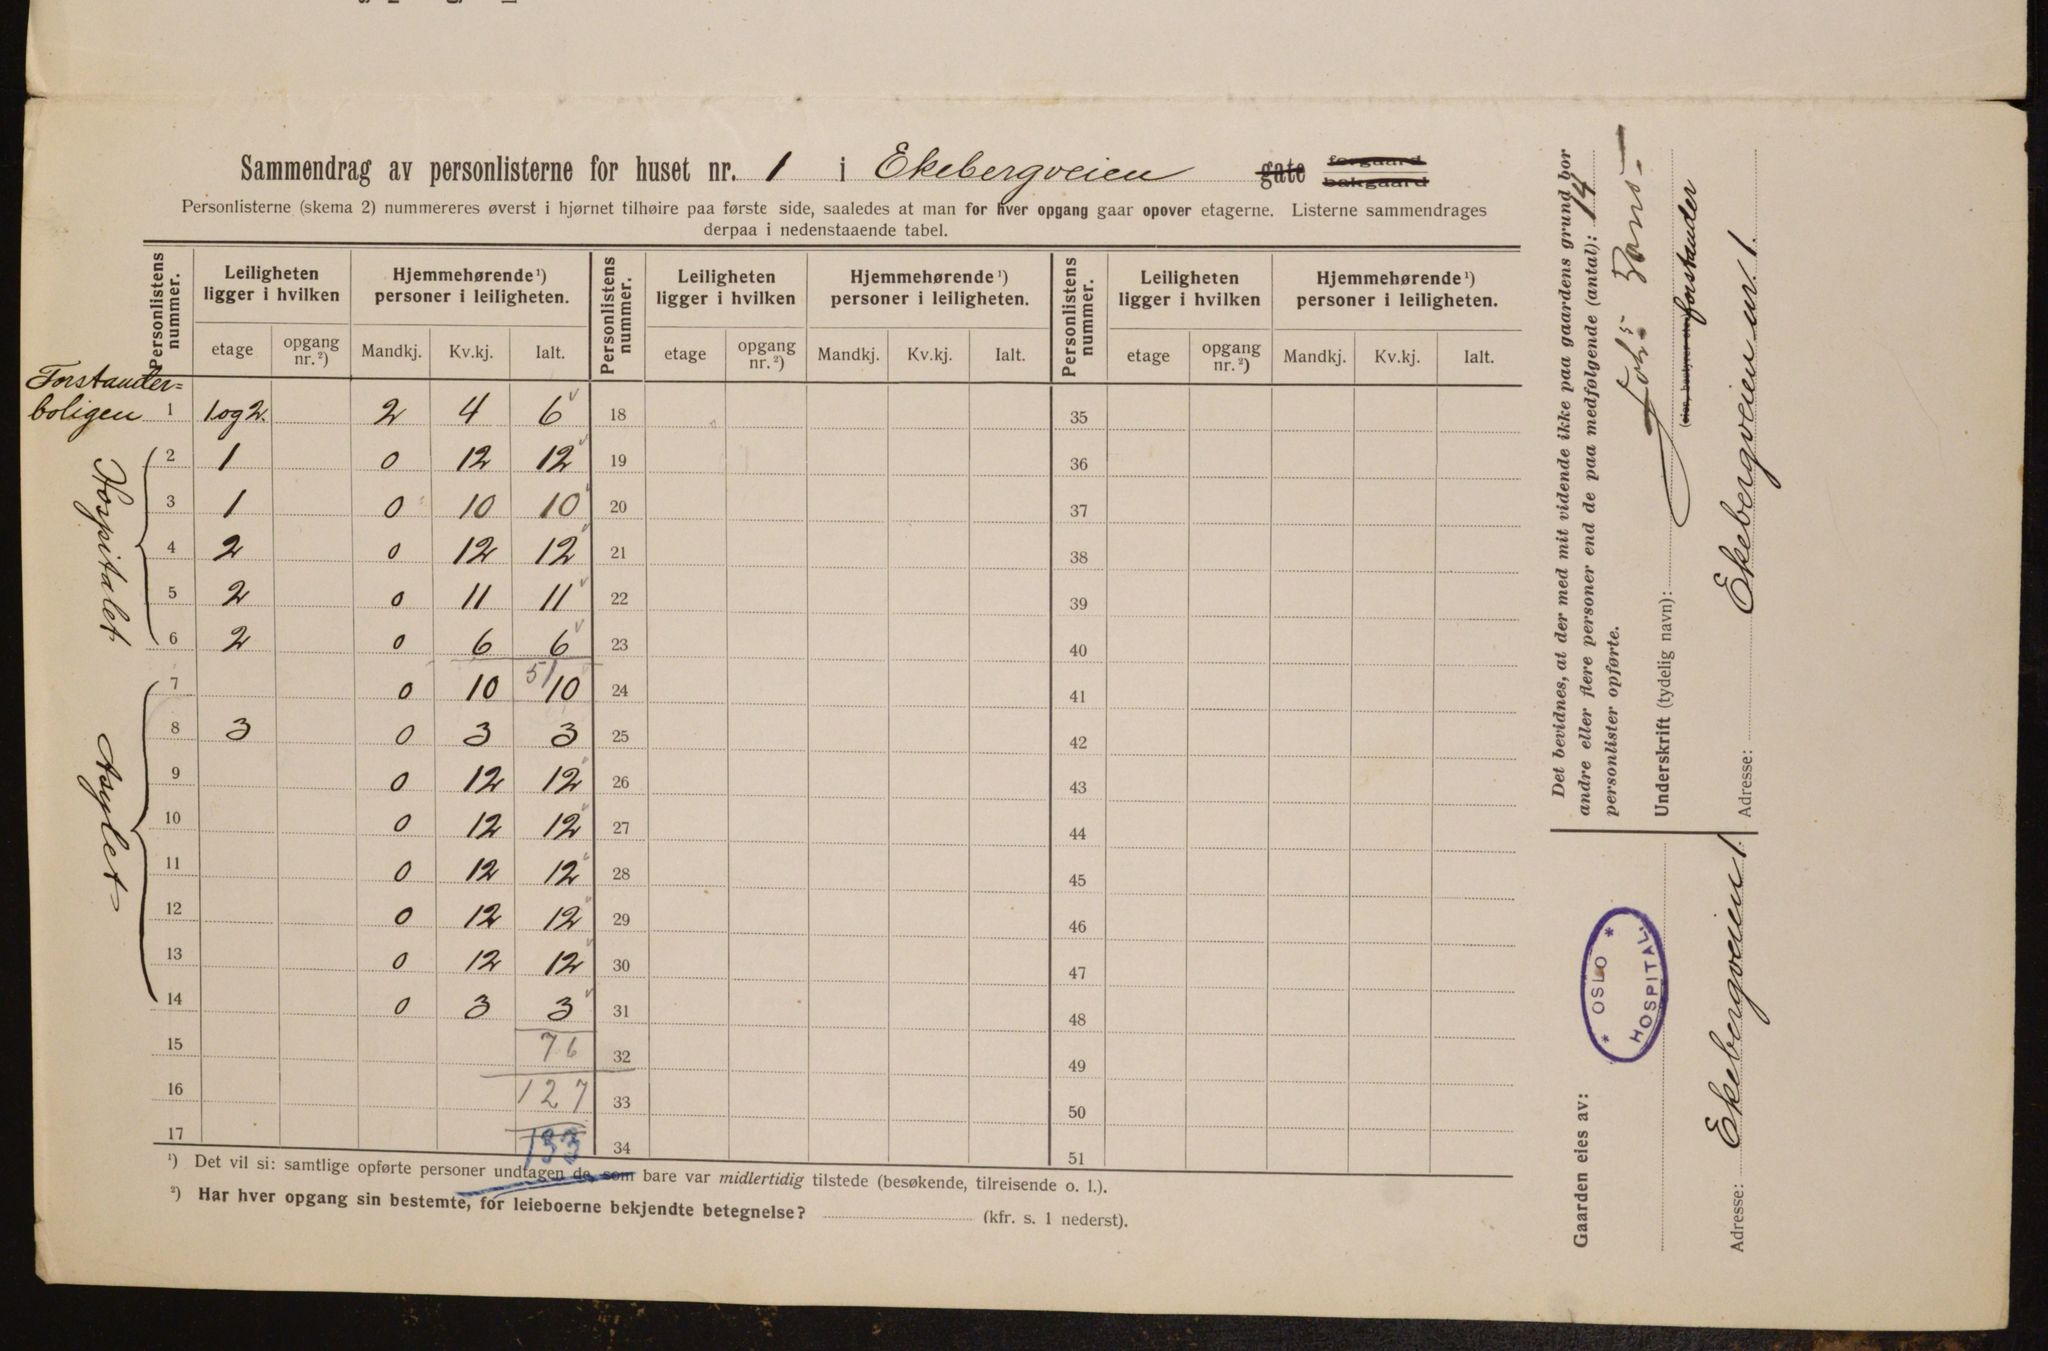 Sammendrag av personlisterne for huset nr. 1 i Ekebergveien gate forgaard bakgaard
Personlisterne (skema 2) nummereres øverst i hjørnet tilhøire paa første side, saaledes at man for hver opgang gaar opover etagerne. Listerne sammendrages
derpaa i nedenstaaende tabel.
Personlistens nummer. Leiligheten ligger i hvilken Hjemmehørende¹) personer i leiligheten. Personlistens nummer. Leiligheten ligger i hvilken Hjemmehørende¹) personer i leiligheten. Personlistens nummer. Leiligheten ligger i hvilken Hjemmehørende¹) personer i leiligheten.
etage opgang nr.²) Mandkj. Kv.kj. Ialt. etage opgang nr.²) Mandkj. Kv.kj. Ialt. etage opgang nr.²) Mandkj. Kv.kj. Ialt.
Forstander=
boligen 1 1 og 2. 2 4 6 18 35
Hospitalet
2 1 0 12 12 19 36
3 1 0 10 10 20 37
4 2 0 12 12 21 38
5 2 0 11 11 22 39
6 2 0 6 6 23 40
51
Asylet
7 0 10 10 24 41
8 3 0 3 3 25 42
9 0 12 12 26 43
10 0 12 12 27 44
11 0 12 12 28 45
12 0 12 12 29 46
13 0 12 12 30 47
14 0 3 3 31 48
15 76 32 49
16 127 33 50
17 133 34 51
¹) Det vil si: samtlige opførte personer undtagen de, som bare var midlertidig tilstede (besøkende, tilreisende o. l.).
²) Har hver opgang sin bestemte, for leieboerne bekjendte betegnelse? (kfr. s. 1 nederst).
Det bevidnes, at der med mit vidende ikke paa gaardens grund bor
andre eller flere personer end de paa medfølgende (antal): 14
personlister opførte.
Underskrift (tydelig navn):
forstander
Adresse: Ekebergveien nr. 1.
Gaarden eies av:
* OSLO *
HOSPITAL
Adresse: Ekebergveien 1.